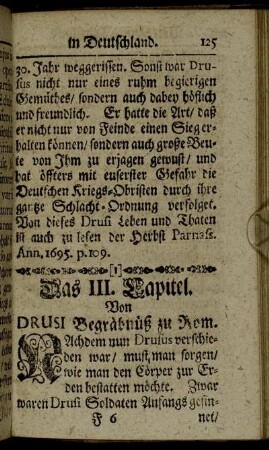 in Deutschland. 125
30. Jahr weggerissen. Sonst war Dru-
sus nicht nur eines ruhm begierigen
Gemüthes/ sondern auch dabey höflich
und freundlich. Er hatte die Art/ daß
er nicht nur von Feinde einen Sieg er-
halten können/ sondern auch große Beu-
te von Ihm zu erjagen gewust/ und
hat öffters mit euserster Gefahr die
Deutschen Kriegs-Obristen durch ihre
gantze Schlacht-Ordnung verfolget.
Von dieses Drusi Leben und Thaten
ist auch zu lesen der Herbst Parnass.
Ann, 1695. p. 109.
Das III. Capitel.
Von
DRUSI Begräbnüß zu Rom.
NAchdem nun Drusus verschie-
den war/ must man sorgen/
wie man den Cörper zur Er-
den bestatten möchte. Zwar
waren Drusi Soldaten Anfangs gesin-
F 6 net/